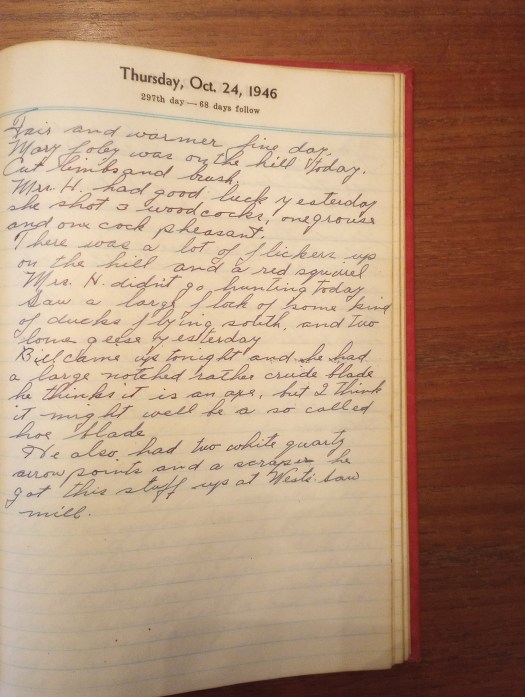 Thursday, Oct. 24, 1946
297th day — 68 days follow
Fair and warmer fine day.
Mary Foley was on the hill today.
Cut limbs and brush.
Mrs. H. had good luck yesterday
she shot 3 woodcocks, one grouse
and one cock pheasant.
There was a lot of flickers up
on the hill and a red squirrel
Mrs. H. didn't go hunting today
Saw a large flock of some kind
of ducks flying south, and two
lone geese yesterday
Bill came up tonight and he had
a large notched rather crude blade
he thinks it is an axe, but I think
it might well be a so called
hoe blade
He also had two white quartz
arrow points and a scraper he
got this stuff up at West's Saw
mill.